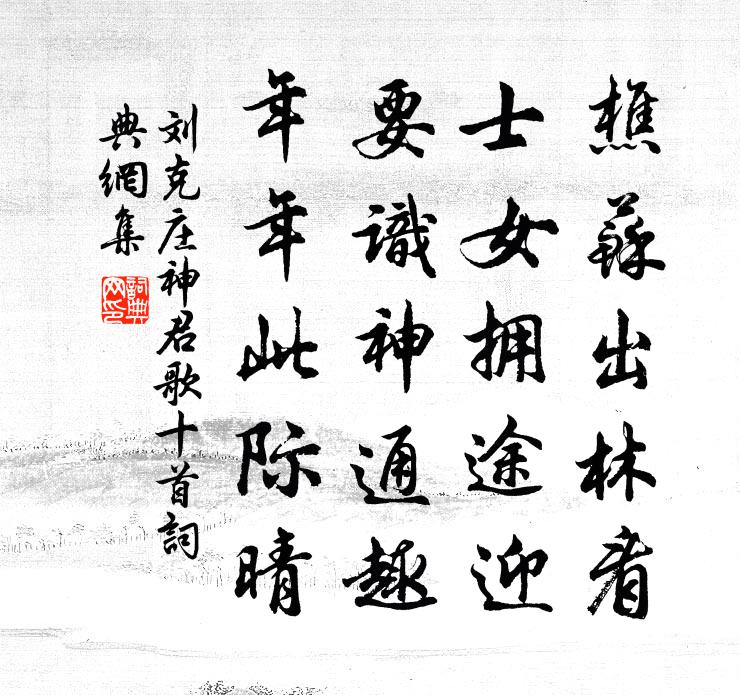 樵蘇出林看
士女拥途迎
要識神通趣
年年此际晴
刘克庄神君歌十首詞
典網集
詞典
网印